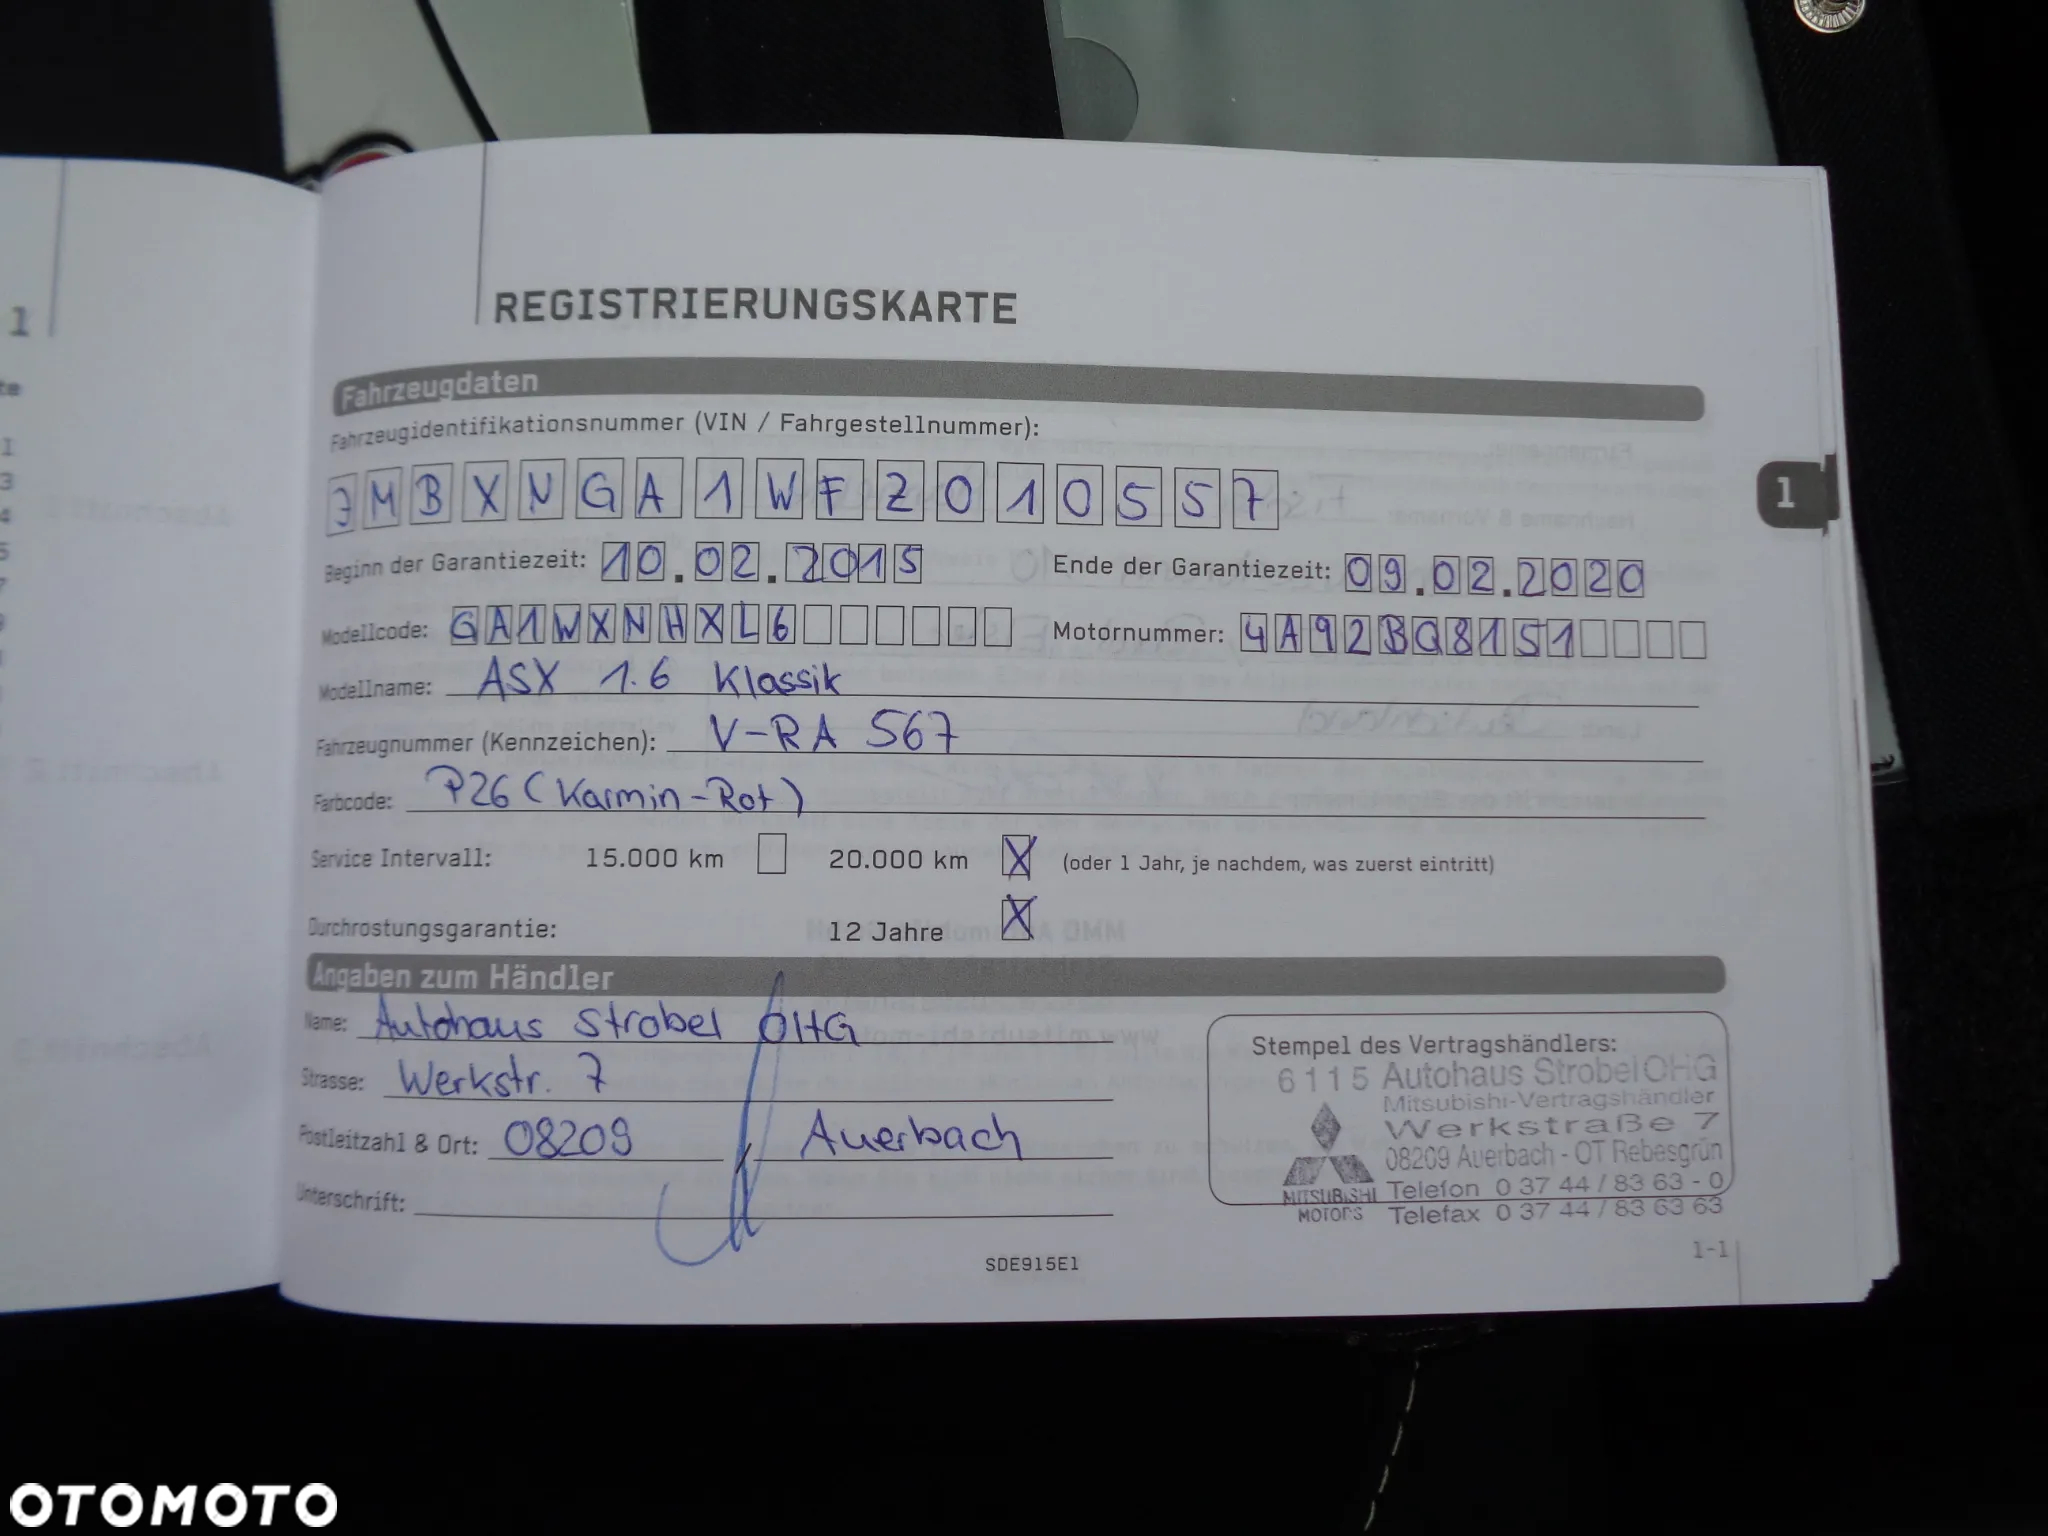 1
REGISTRIERUNGSKARTE
Fahrzeugdaten
Fahrzeugidentifikationsnummer (VIN / Fahrgestellnummer):
JMBXNGA1WFZ010557
1
Beginn der Garantiezeit: 10.02.2015 Ende der Garantiezeit: 09.02.2020
Modellcode: GA1WXNHXL6 Motornummer: 4A92BQ8151
Modellname: ASX 1.6 Klassik
Fahrzeugnummer (Kennzeichen): V-RA 567
Farbcode: P26 (Karmin-Rot)
Service Intervall: 15.000 km 20.000 km X (oder 1 Jahr, je nachdem, was zuerst eintritt)
Durchrostungsgarantie: 12 Jahre X
Angaben zum Händler
Name: Autohaus Strobel OHG
Strasse: Werkstr. 7
Postleitzahl & Ort: 08209 Auerbach
Unterschrift:
Stempel des Vertragshändlers:
6115 Autohaus Strobel OHG
Mitsubishi-Vertragshändler
Werkstraße 7
08209 Auerbach - OT Rebesgrün
Telefon 0 37 44 / 83 63 - 0
Telefax 0 37 44 / 83 63 63
MITSUBISHI
MOTORS
SDE915E1
1-1
OTOMOTO